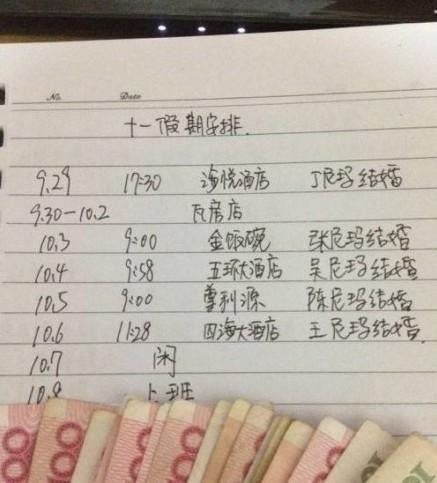 No. Date
十一假期安排.
9.29 17:30 海悦酒店 丁尼玛结婚
9.30-10.2 瓦房店
10.3 9:00 金饭碗 张尼玛结婚
10.4 9:58 五环大酒店 吴尼玛结婚
10.5 9:00 尊利源 陈尼玛结婚
10.6 11:28 四海大酒店 王尼玛结婚.
10.7 闲
10.8 上班
100 100 100